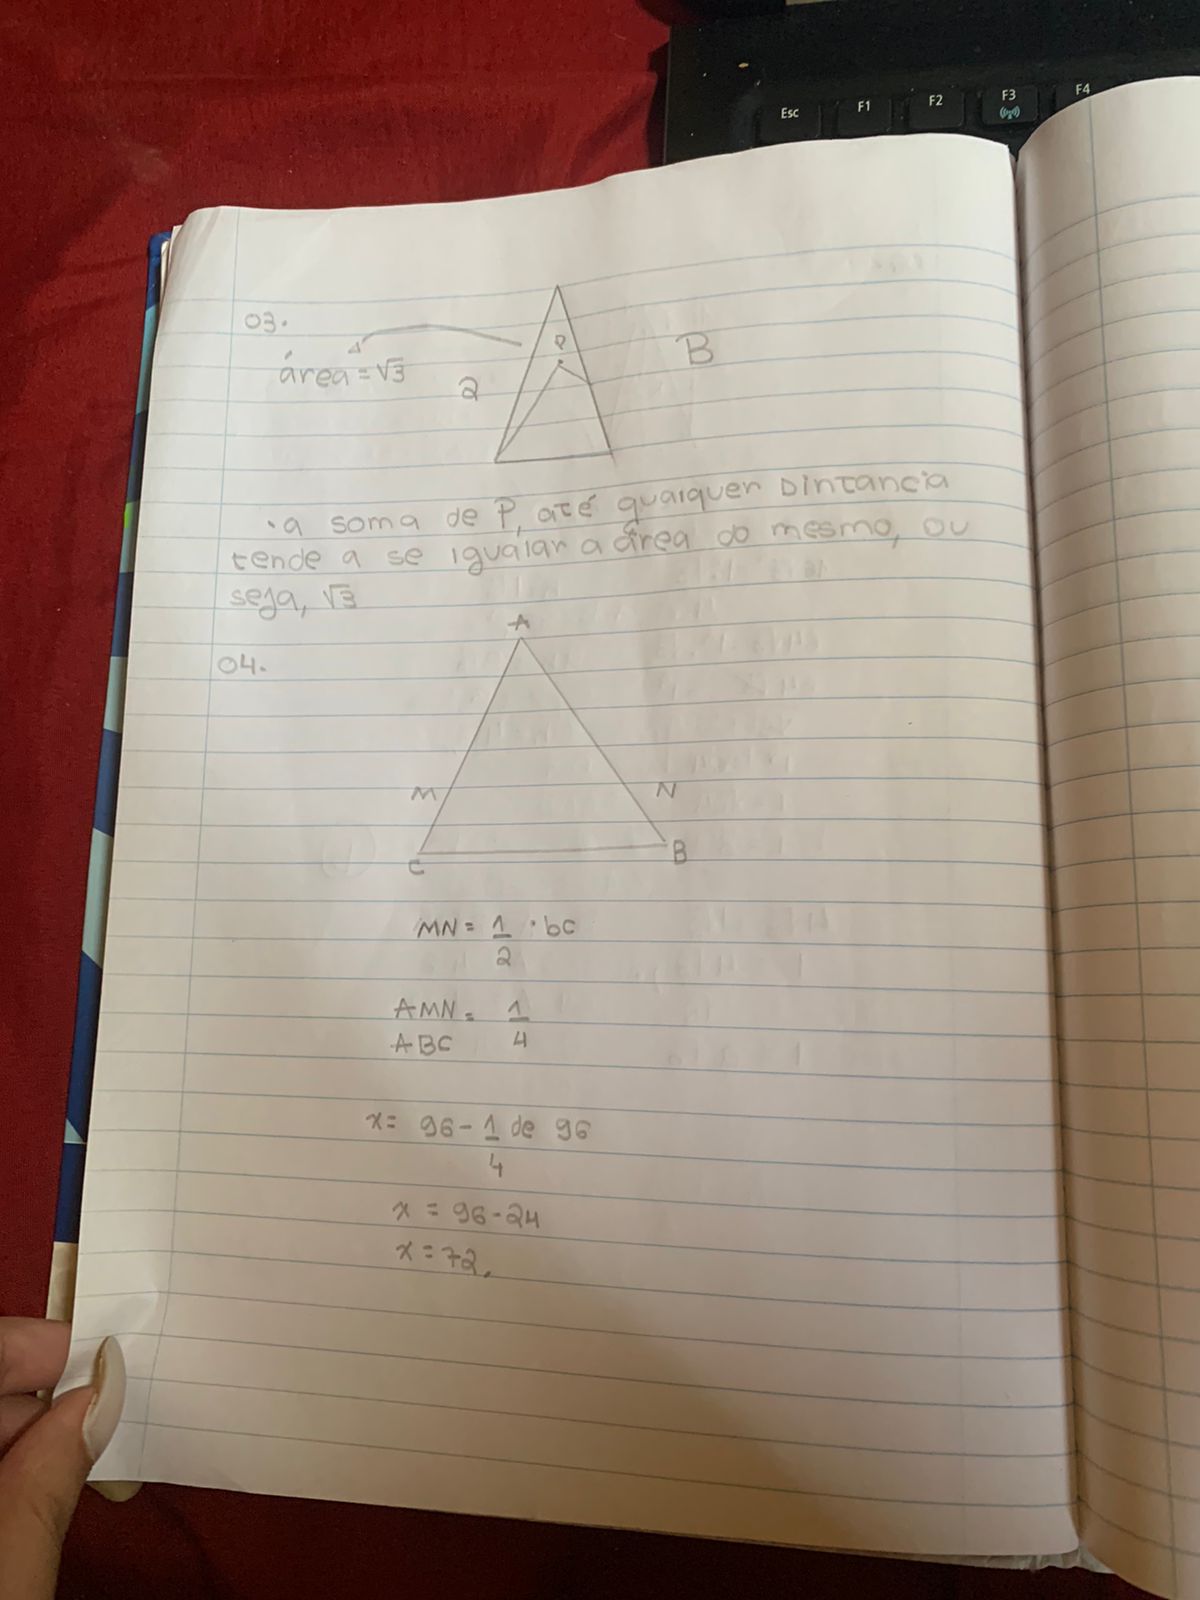 Esc F1 F2 F3 F4
03.
P
B
área = √3
2
• a soma de P, até qualquer Dintancia
tende a se igualar a área do mesmo, ou
seja, √3
A
04.
M N
C B
MN = 1/2 · bc
AMN/ABC = 1/4
x = 96 - 1/4 de 96
x = 96 - 24
x = 72.